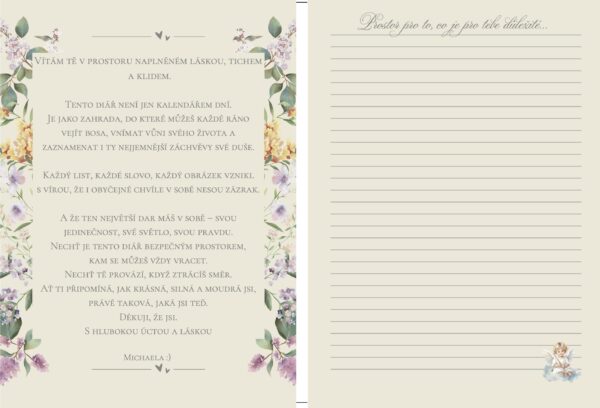 Vítám tě v prostoru naplněném láskou, tichem
a klidem.
Tento diář není jen kalendářem dní.
Je jako zahrada, do které můžeš každé ráno
vejít bosa, vnímat vůni svého života a
zaznamenat i ty nejjemnější záchvěvy své duše.
Každý list, každé slovo, každý obrázek vznikl
s vírou, že i obyčejné chvíle v sobě nesou zázrak.
A že ten největší dar máš v sobě – svou
jedinečnost, své světlo, svou pravdu.
Nechť je tento diář bezpečným prostorem,
kam se můžeš vždy vracet.
Nechť tě provází, když ztrácíš směr.
Ať ti připomíná, jak krásná, silná a moudrá jsi,
právě taková, jaká jsi teď.
Děkuji, že jsi.
S hlubokou úctou a láskou
Michaela :)
Prostor pro to, co je pro tebe důležité...